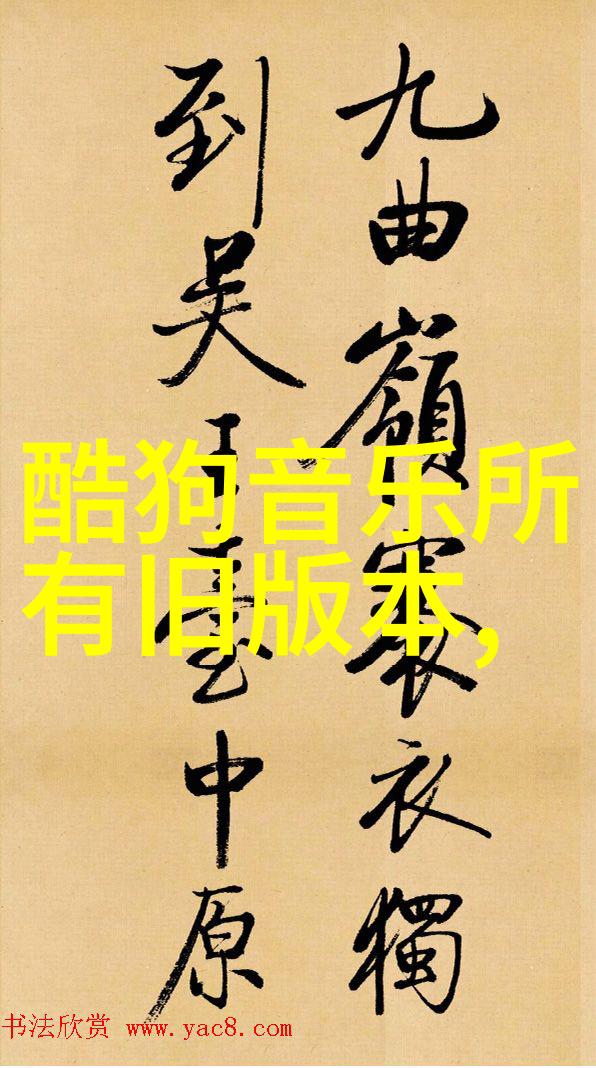 九曲嶺褰衣獨
到吴王臺中原
酷狗音乐所
有旧版本,
书法欣赏 www.yac8.com